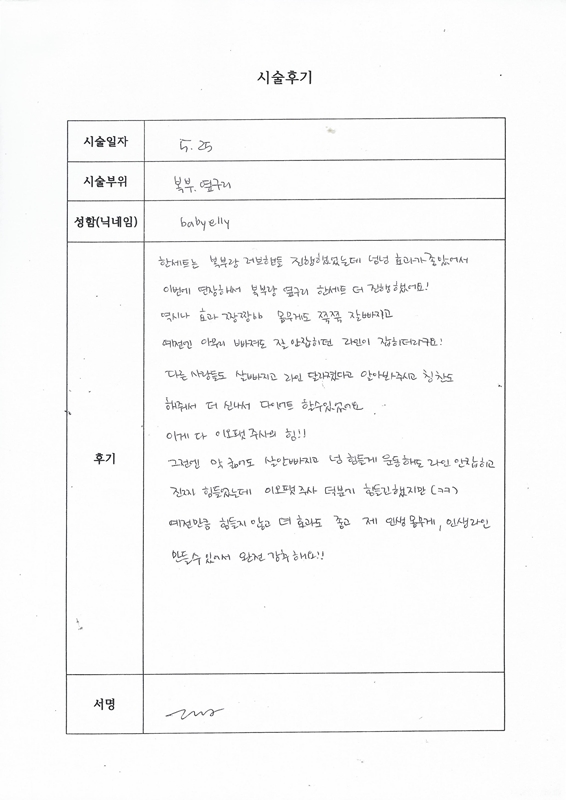 시술후기
시술일자 5. 25
시술부위 복부. 옆구리
성함(닉네임) babyelly
후기
한세트는 복부랑 러브핸들 진행했었는데 넘넘 효과가 좋았어서
이번에 연장하여서 복부랑 옆구리 한세트 더 진행했어요!
역시나 효과 짱짱하 몸무게도 쭉쭉 잘빠지고
예전엔 아무리 빠져도 잘 안잡히던 라인이 잡히더라구요!
다른 사람들도 살빠지고 라인 달라졌다고 알아봐주시고 칭찬도
해주셔서 더 신나서 다이어트 할수있었어요
이게 다 이오팻 주사의 힘!!
그전엔 막 굶어도 살안빠지고 넘 힘들게 운동해도 라인 안잡히고
진짜 힘들었는데 이오팻주사 덕분에 힘들긴했지만 (ㅋㅋ)
예전만큼 힘들지 않고 더 효과도 좋고 제 인생몸무게, 인생라인
만들수 있어서 완전 강추해요!!
서명